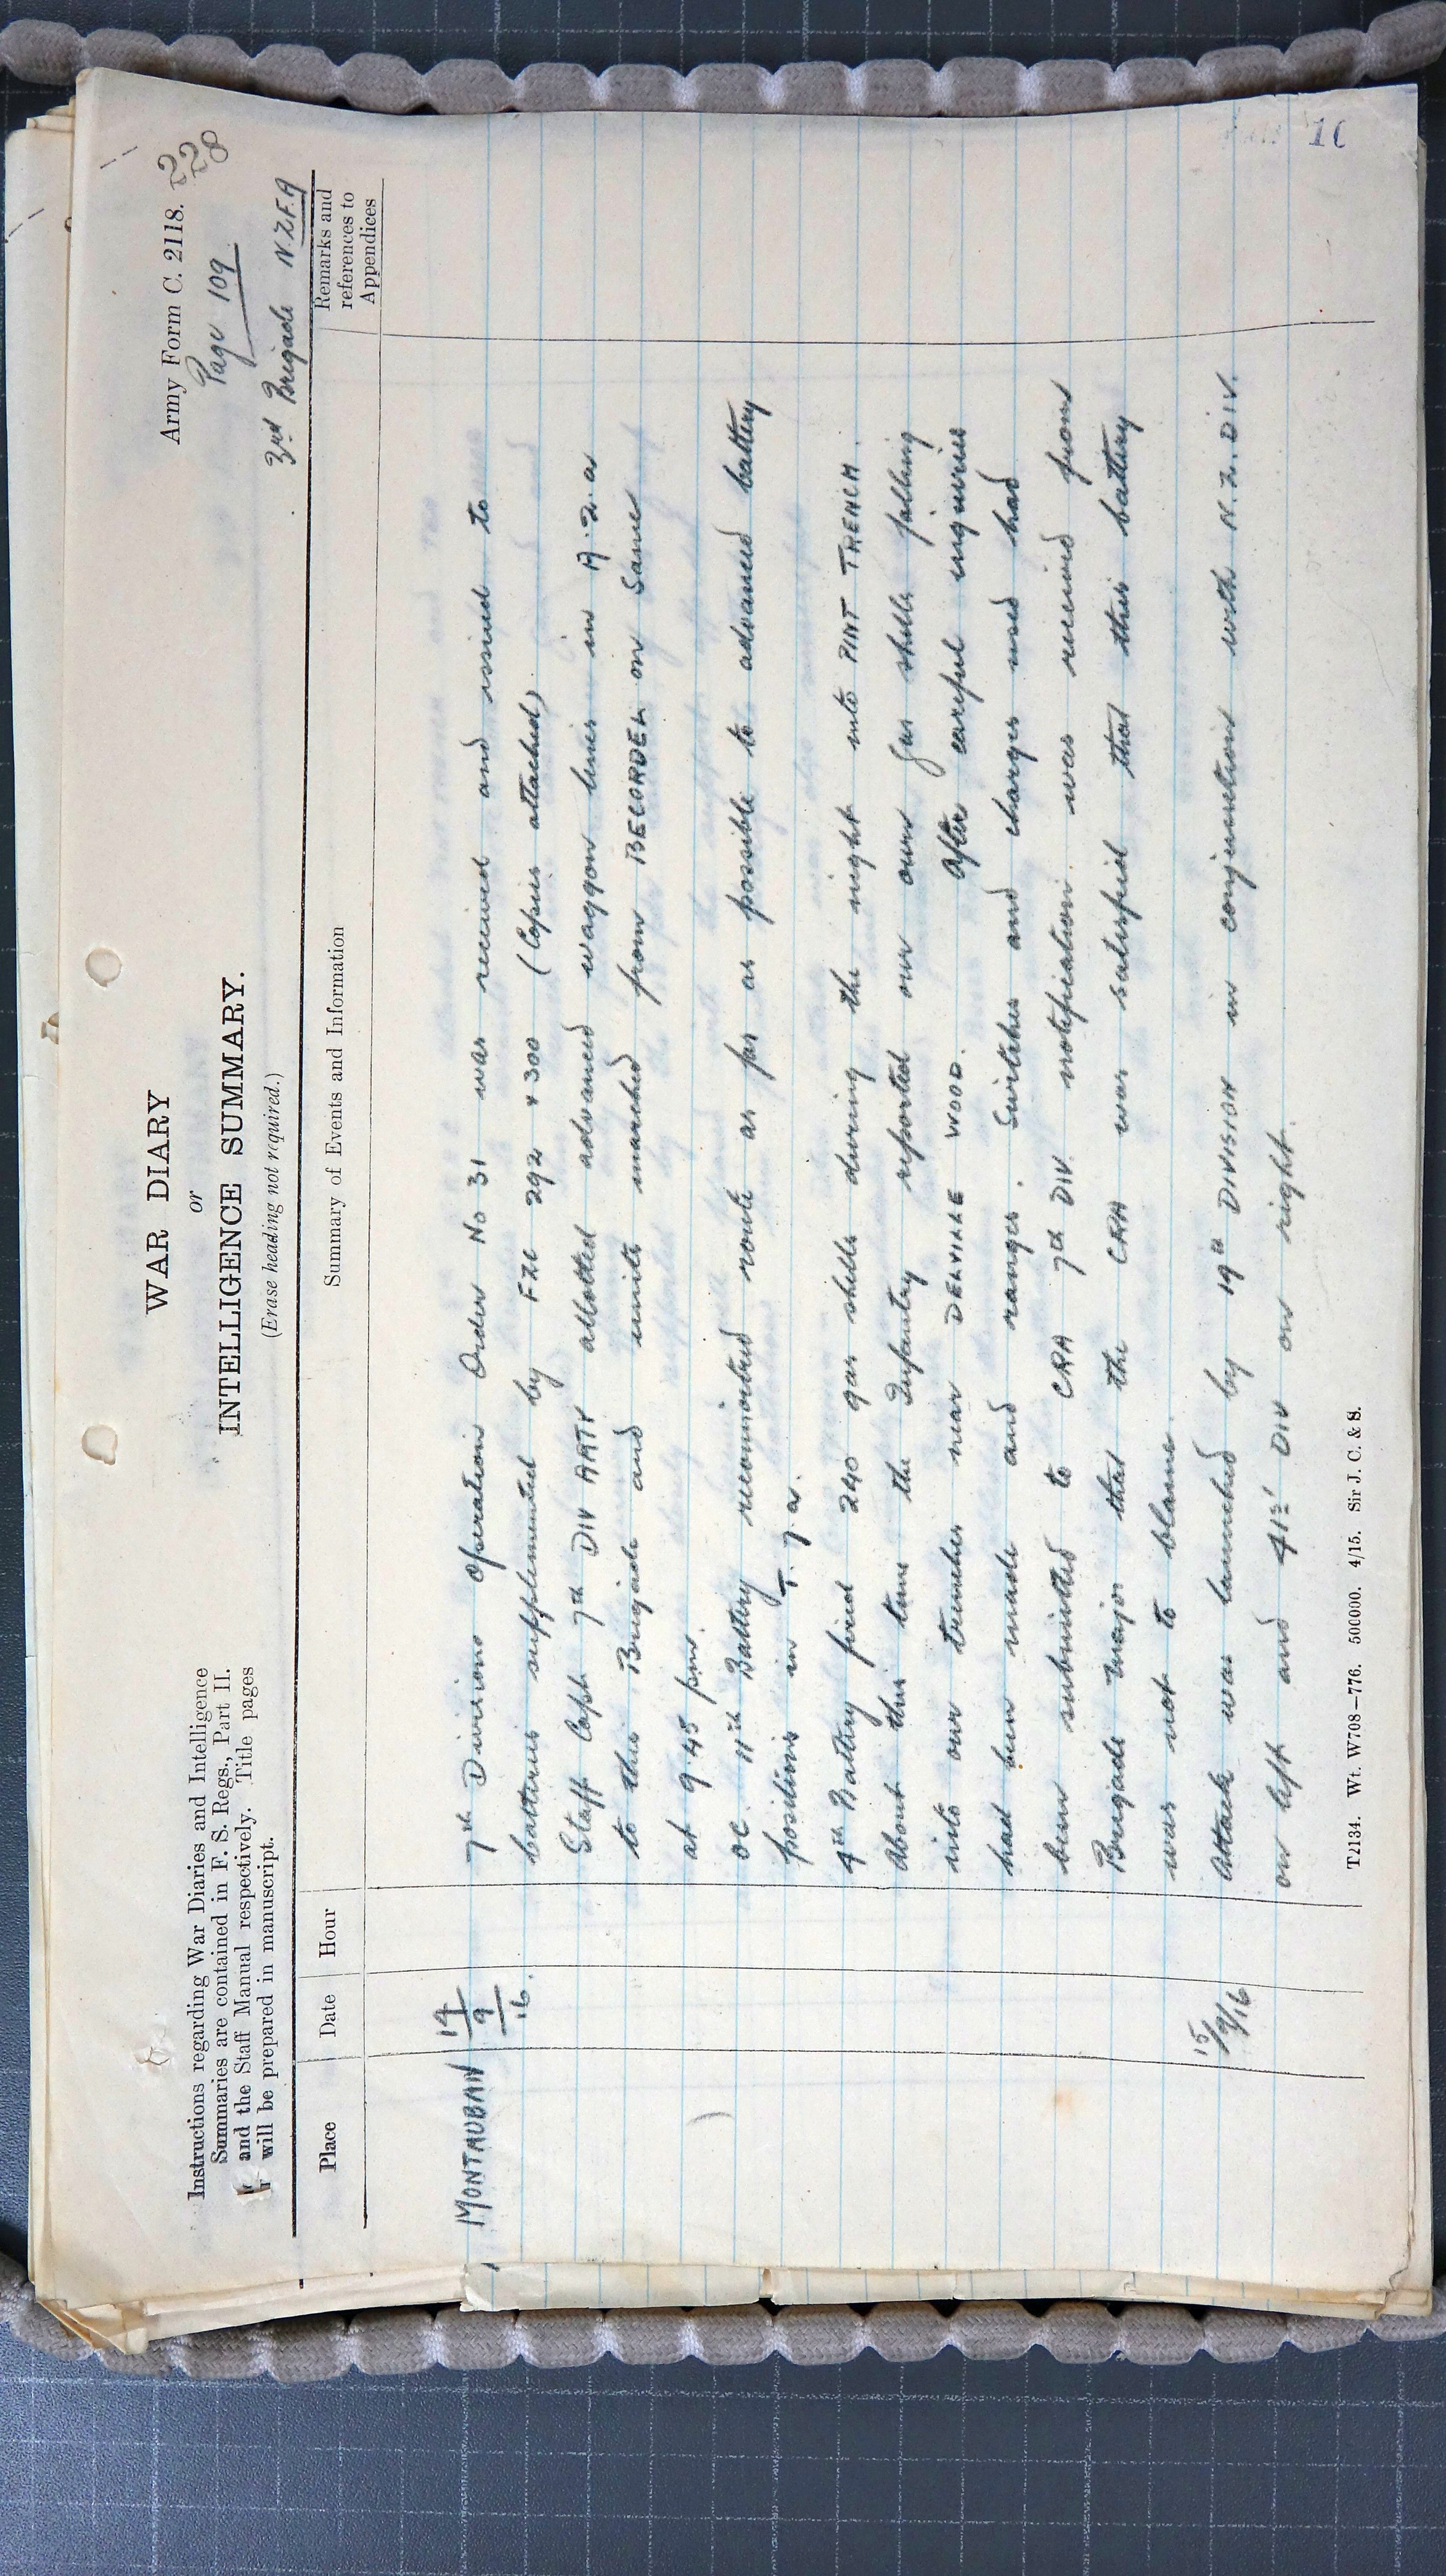 WAR DIARY
or
INTELLIGENCE SUMMARY.
(Erase heading not required.)
Army Form C. 2118.
228
Page 109
3rd Brigade N.Z.F.A
Instructions regarding War Diaries and Intelligence
Summaries are contained in F. S. Regs., Part II.
and the Staff Manual respectively. Title pages
will be prepared in manuscript.
Place
Date
Hour
Summary of Events and Information
Remarks and
references to
Appendices
MONTAUBAN
14
9
16.
7th Division Operation Order No 31 was received and issued to
batteries supplemented by FZC 292 + 300 (Copies attached)
Staff Capt 7th DIV ARTY allotted advanced waggon lines in A.2.a
to this Brigade and units marched from BECORDEL on same
at 9.45 pm.
OC 11th Battery reconnoitred route as far as possible to advanced battery
positions in T.7.a.
4th Battery fired 240 gas shells during the night into PINT TRENCH.
About this time the Infantry reported our own gas shells falling
into our trenches near DELVILLE WOOD. After careful inquiries
had been made and ranges. Switches and charges used had
been submitted to CRA 7th DIV. notification was received from
Brigade Major that the CRA was satisfied that this battery
was not to blame.
15/9/16
Attack was launched by 14th DIVISION in conjunction with N.Z. DIV.
on left and 41st DIV on right.
T2134. Wt. W708—776. 500000. 4/15. Sir J. C. & S.